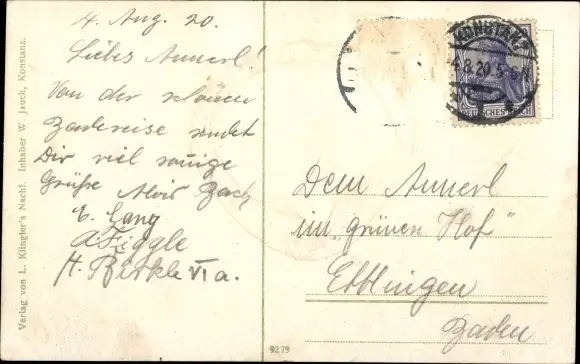 4. Aug. 20.
Liebes Annerl!
Von der schönen
Badereise sendet
Dir viel innige
Grüße Alois Bach
E. Lang
A. Figgle
H. Birkle VI a.
Dem Annerl
im „grünen Hof"
Ettlingen
Baden
KONSTANZ
4.8.20.5-6N
DEUTSCHES REICH
Verlag von L. Klingler's Nachf. Inhaber W. Jauch, Konstanz.
9279